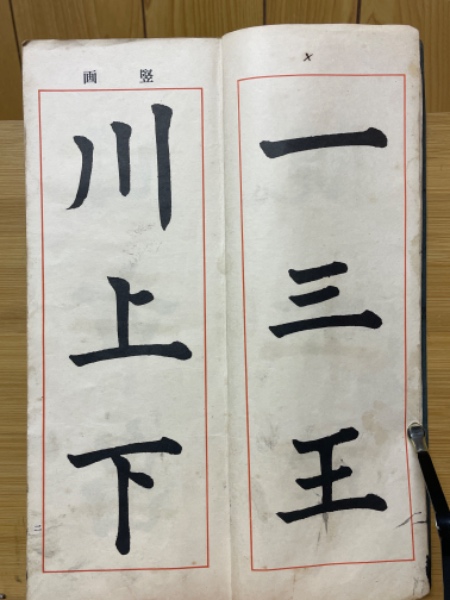 一三王
竪画
川上下